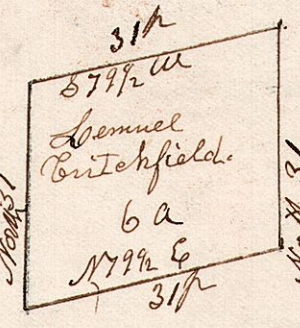 31 p
S 79 1/2 W
Lemuel
Critchfield.
6 a
N 79 1/2 E
31 p
North 31